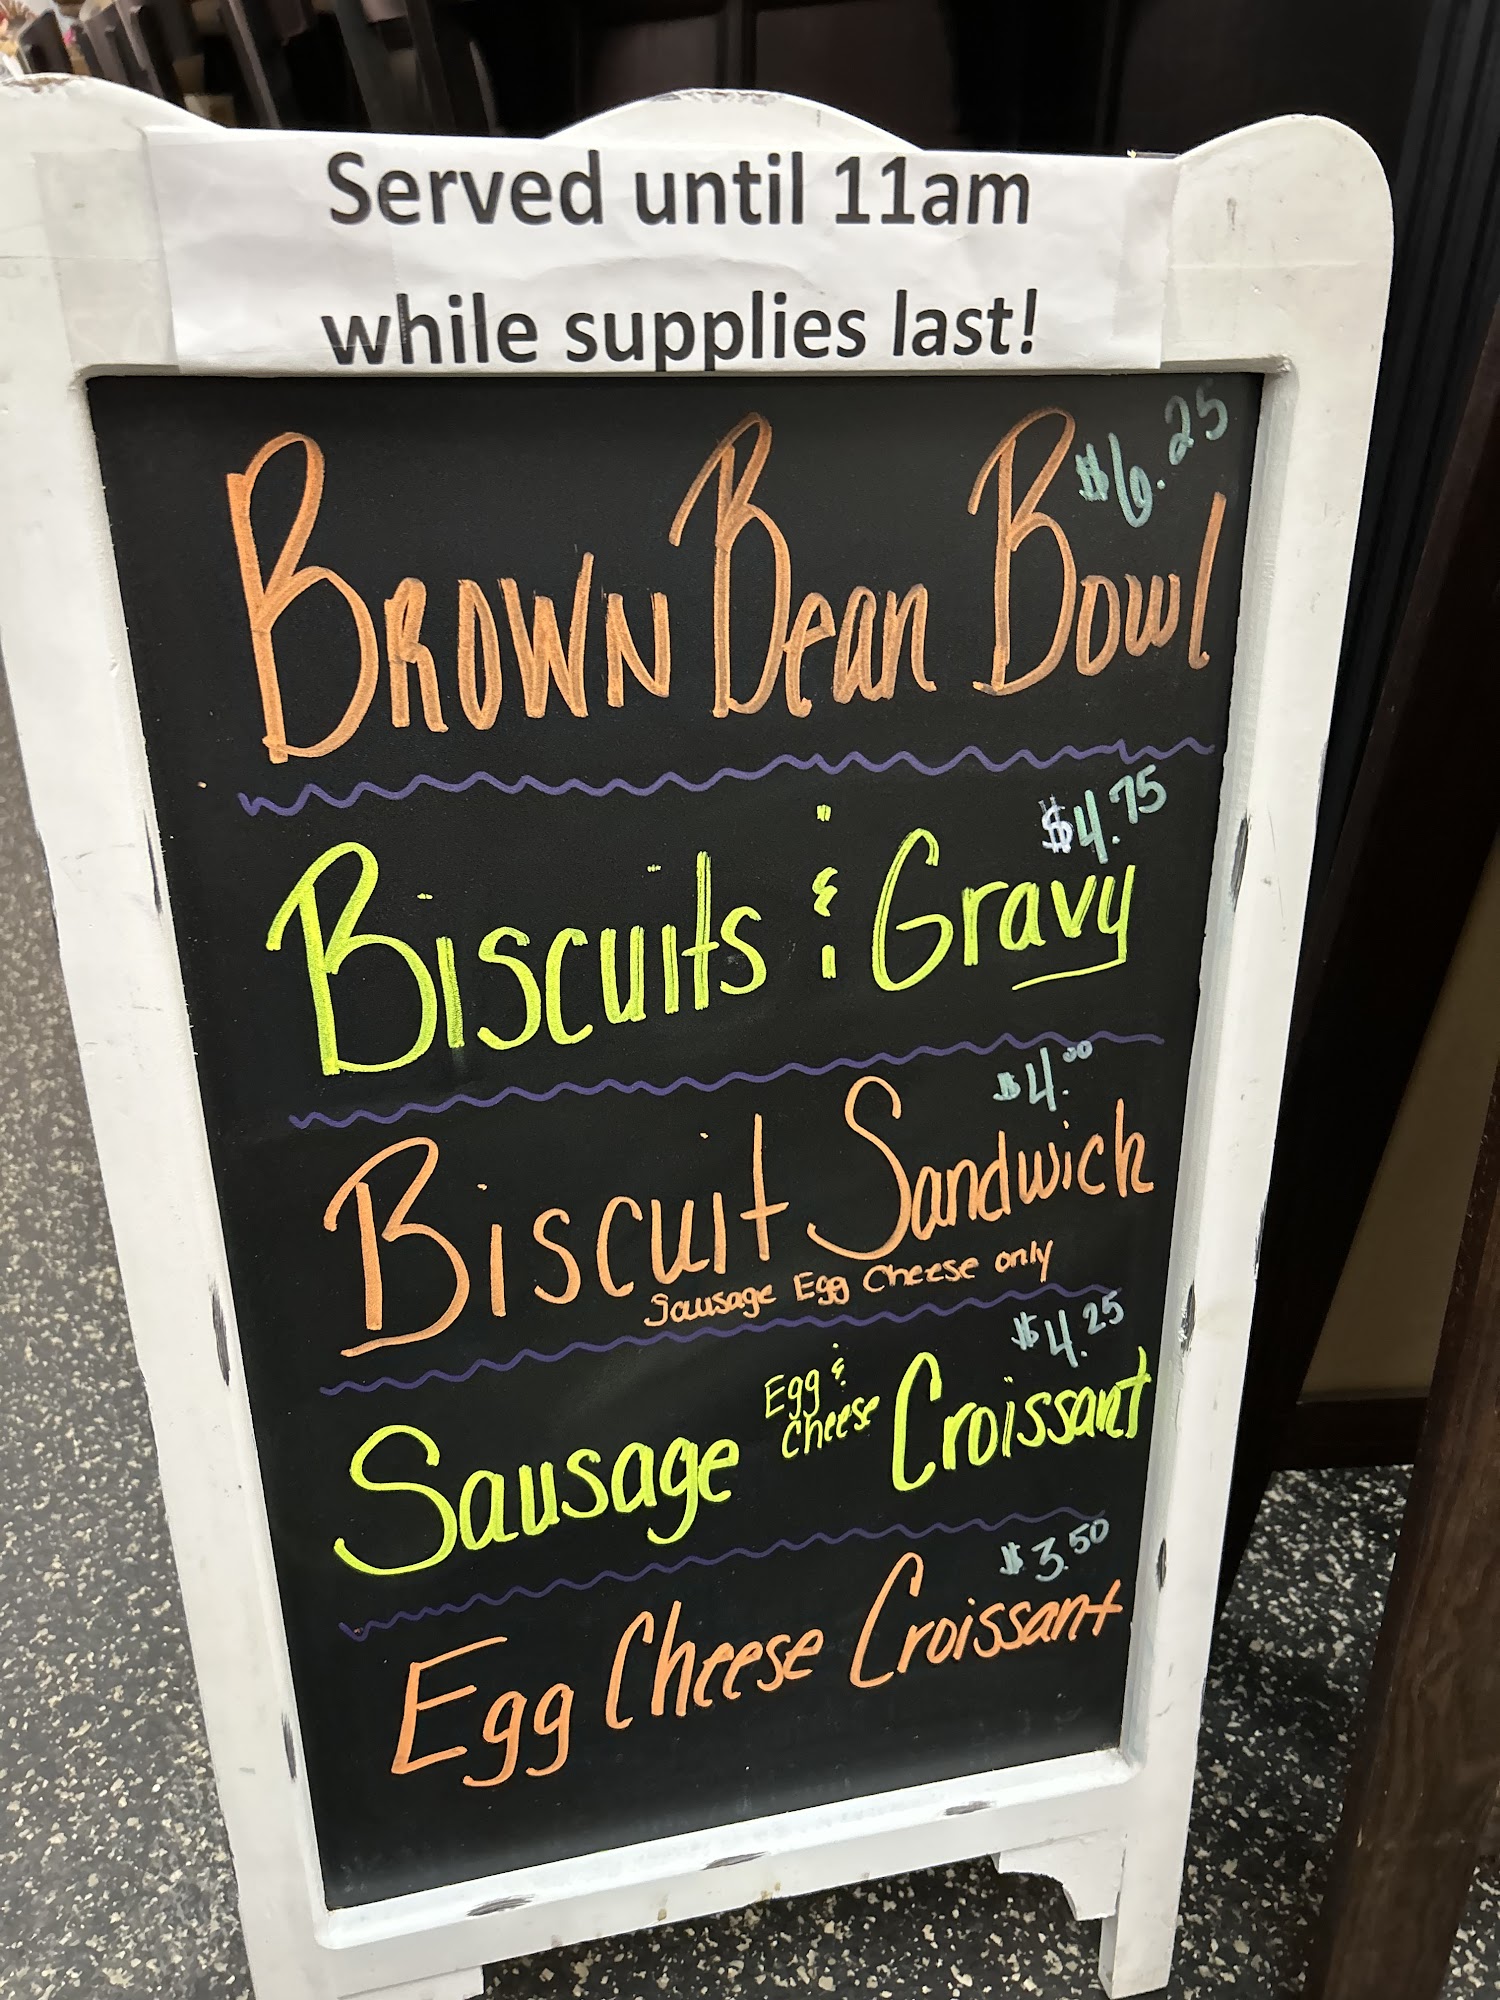 Served until 11am
while supplies last!
$6.25
Brown Bean Bowl
$4.75
Biscuits & Gravy
$4.00
Biscuit Sandwich
Sausage Egg Cheese only
$4.25
Sausage Egg & Cheese Croissant
$3.50
Egg Cheese Croissant